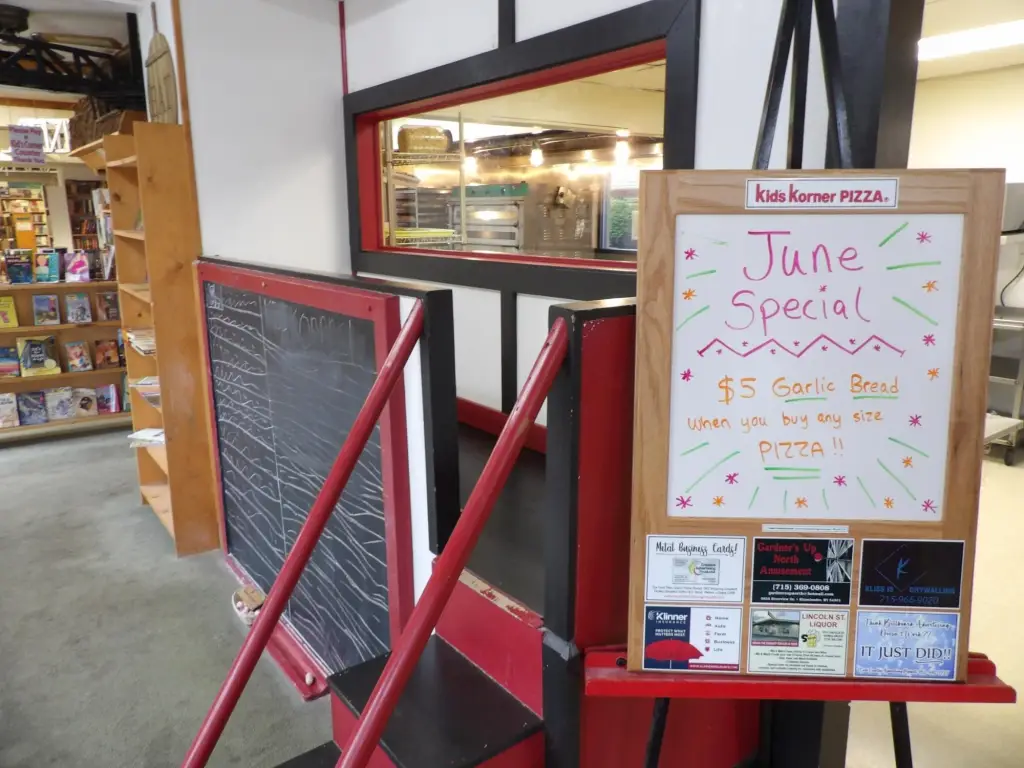 Please Pay
Kid's Korner
Counter
Thank You
Kid's Korner PIZZA
June
Special
$5 Garlic Bread
when you buy any size
PIZZA!!
Metal Business Cards!
Gardner's Up
North
Amusement
(715) 369-0808
KLISS IS DRYWALLING
715-966-9029
Klinner
INSURANCE
PROTECT WHAT
MATTERS MOST
Home
Auto
Farm
Business
Life
LINCOLN ST.
LIQUOR
Think Business Advertising
Doesn't Work??
IT JUST DID!!